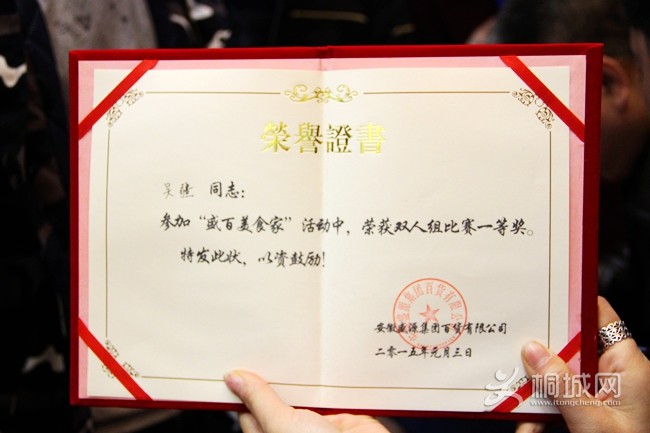 榮譽證書
吴健 同志：
参加“盛百美食家”活动中，荣获双人组比赛一等奖。
特发此状，以资鼓励！
安徽盛源集团百货有限公司
安徽盛源集团百货有限公司
二零一五年元月三日
桐城网
www.itongcheng.com